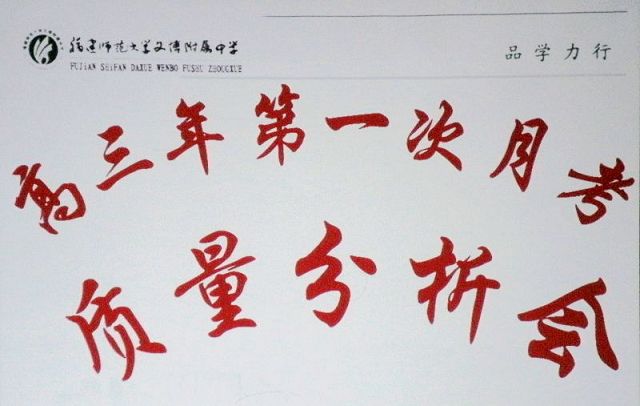 福建师范大学文博附属中学
FUJIAN SHIFAN DAXUE WENBO FUSHU ZHOUGXUE
品学力行
高三年第一次月考
质量分析会